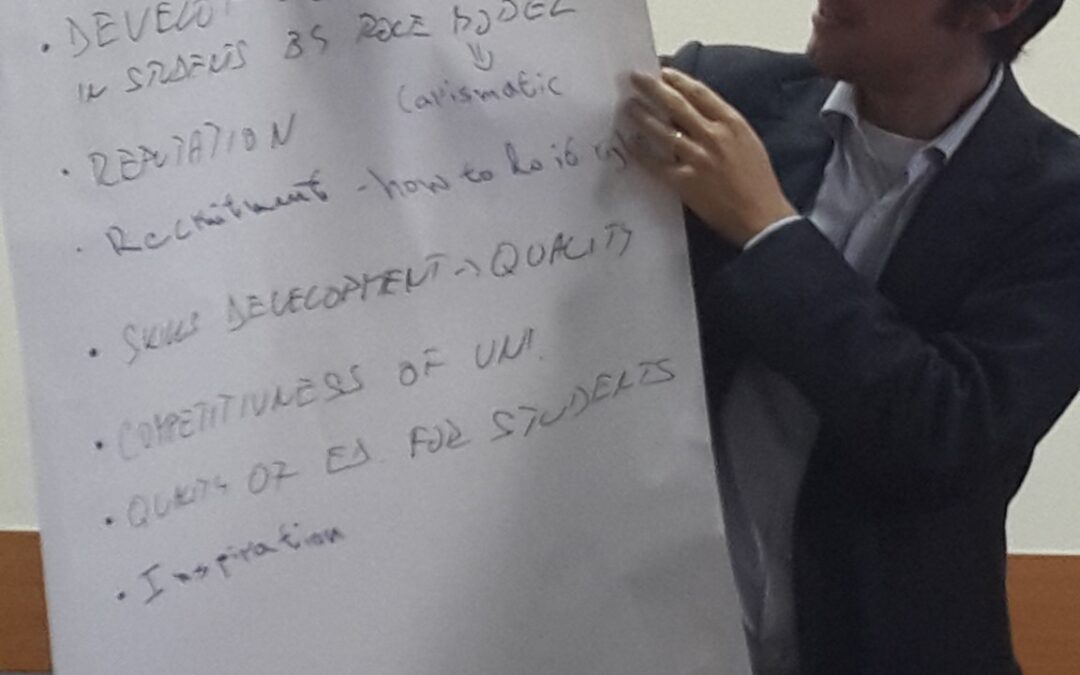 • DEVELOP
IN STUDENTS BY ROLE MODEL
Carismatic
• REPUTATION
• Recruitment - how to do it
• SKILLS DEVELOPMENT -> QUALITY
• COMPETITIVNESS OF UNI.
• QUALITY OF ED. FOR STUDENTS
• Inspiration